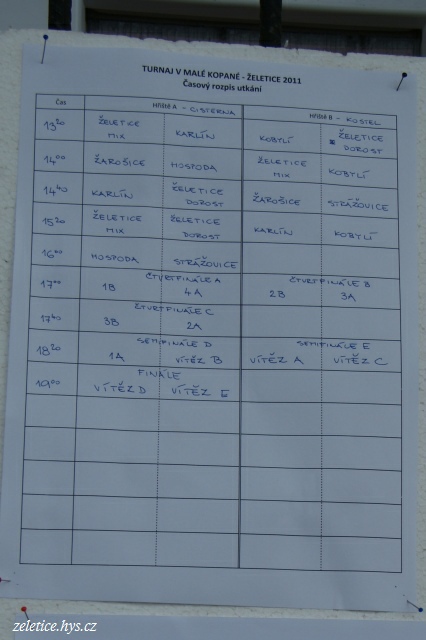 TURNAJ V MALÉ KOPANÉ - ŽELETICE 2011
Časový rozpis utkání
Čas Hřiště A - CISTERNA Hřiště B - KOSTEL
13²⁰ ŽELETICE MIX KARLÍN KOBYLÍ ŽELETICE DOROST
14⁰⁰ ŽAROŠICE HOSPODA ŽELETICE MIX KOBYLÍ
14⁴⁰ KARLÍN ŽELETICE DOROST ŽAROŠICE STRÁŽOVICE
15²⁰ ŽELETICE MIX ŽELETICE DOROST KARLÍN KOBYLÍ
16⁰⁰ HOSPODA STRÁŽOVICE
17⁰⁰ ČTVRTFINÁLE A ČTVRTFINÁLE B
1B 4A 2B 3A
17⁴⁰ ČTVRTFINÁLE C
3B 2A
18²⁰ SEMIFINÁLE D SEMIFINÁLE E
1A VÍTĚZ B VÍTĚZ A VÍTĚZ C
19⁰⁰ FINÁLE
VÍTĚZ D VÍTĚZ E
zeletice.hys.cz